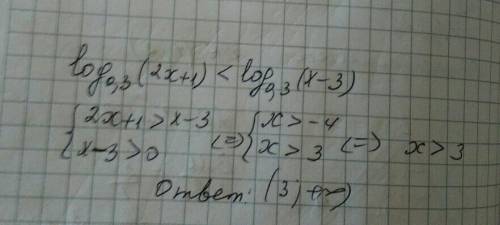 log₀,₃(2x+1) < log₀,₃(x-3)
{2x+1 > x-3 {x > -4
{x-3 > 0 (=) {x > 3 (=) x > 3
Ответ: (3; +∞)